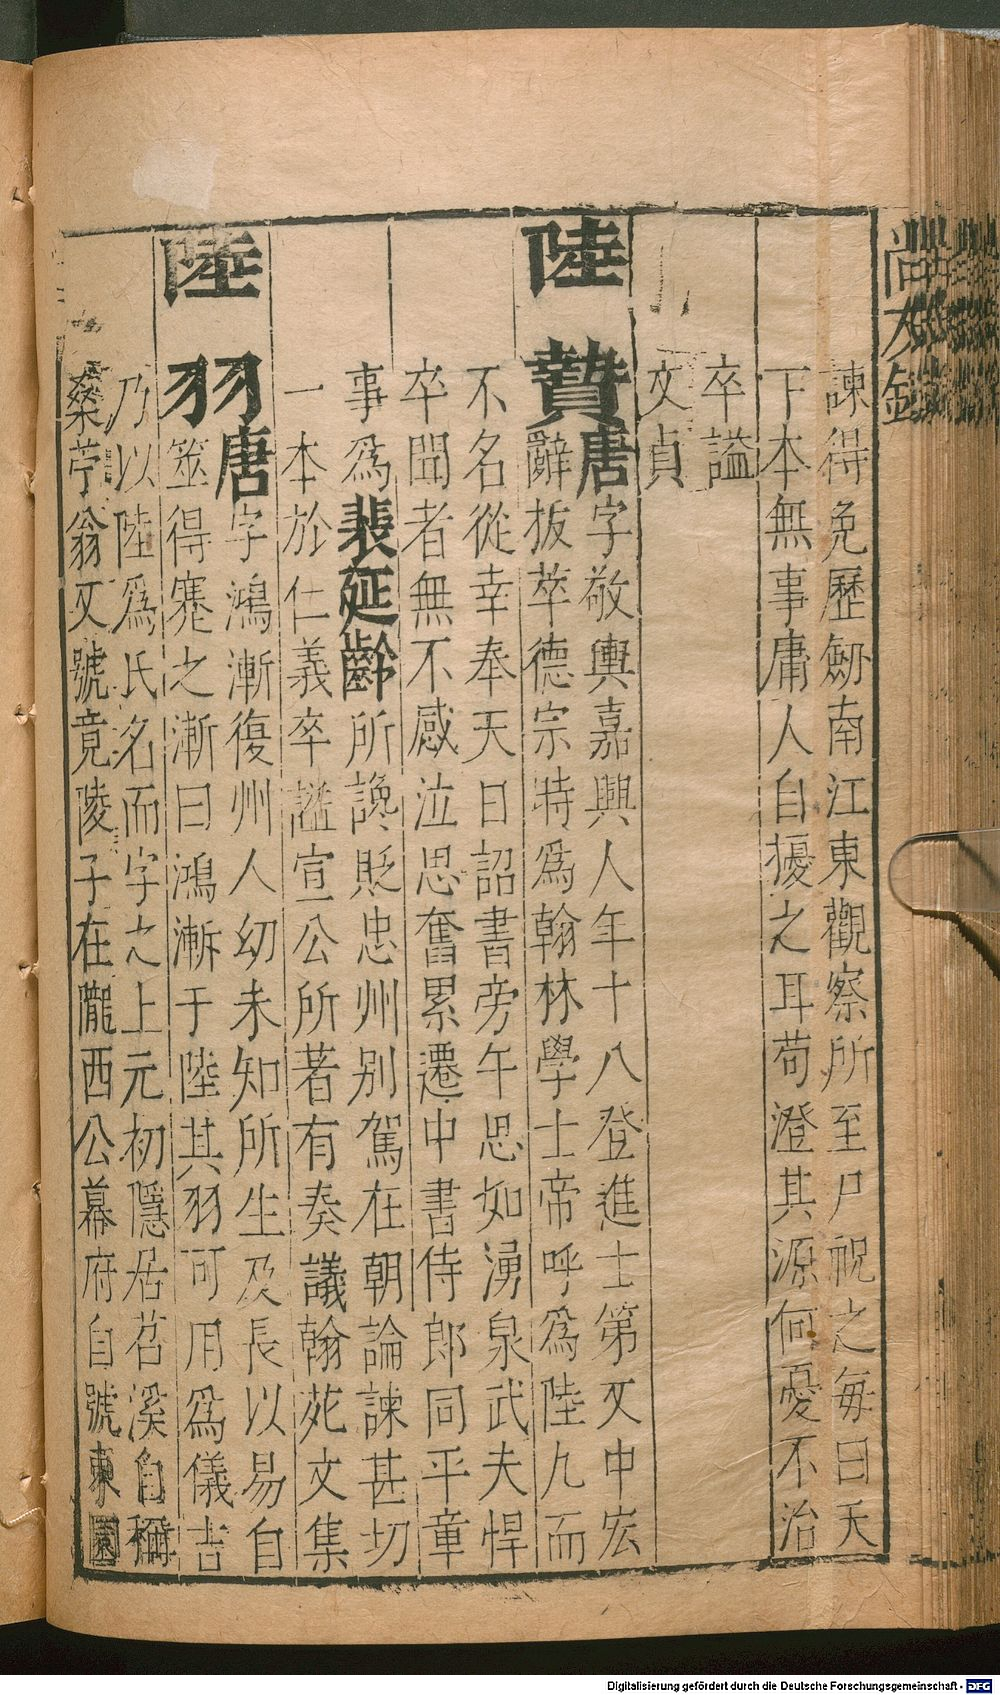 諫得免歷劒南江東觀察所至尸祝之每曰天
下本無事庸人自擾之耳苟澄其源何憂不治
卒謚
文貞
陸贄唐字敬輿嘉興人年十八登進士第又中宏
辭拔萃德宗特爲翰林學士帝呼爲陸九而
不名從幸奉天日詔書旁午思如湧泉武夫悍
卒聞者無不感泣思奮累遷中書侍郎同平章
事爲裴延齡所讒貶忠州別駕在朝論諫甚切
一本於仁義卒謚宣公所著有奏議翰苑文集
陸羽唐字鴻漸復州人幼未知所生及長以易自
筮得蹇之漸曰鴻漸于陸其羽可用爲儀吉
乃以陸爲氏名而字之上元初隱居苕溪自稱
桑苧翁又號竟陵子在隴西公幕府自號東園
Digitalisierung gefördert durch die Deutsche Forschungsgemeinschaft - DFG